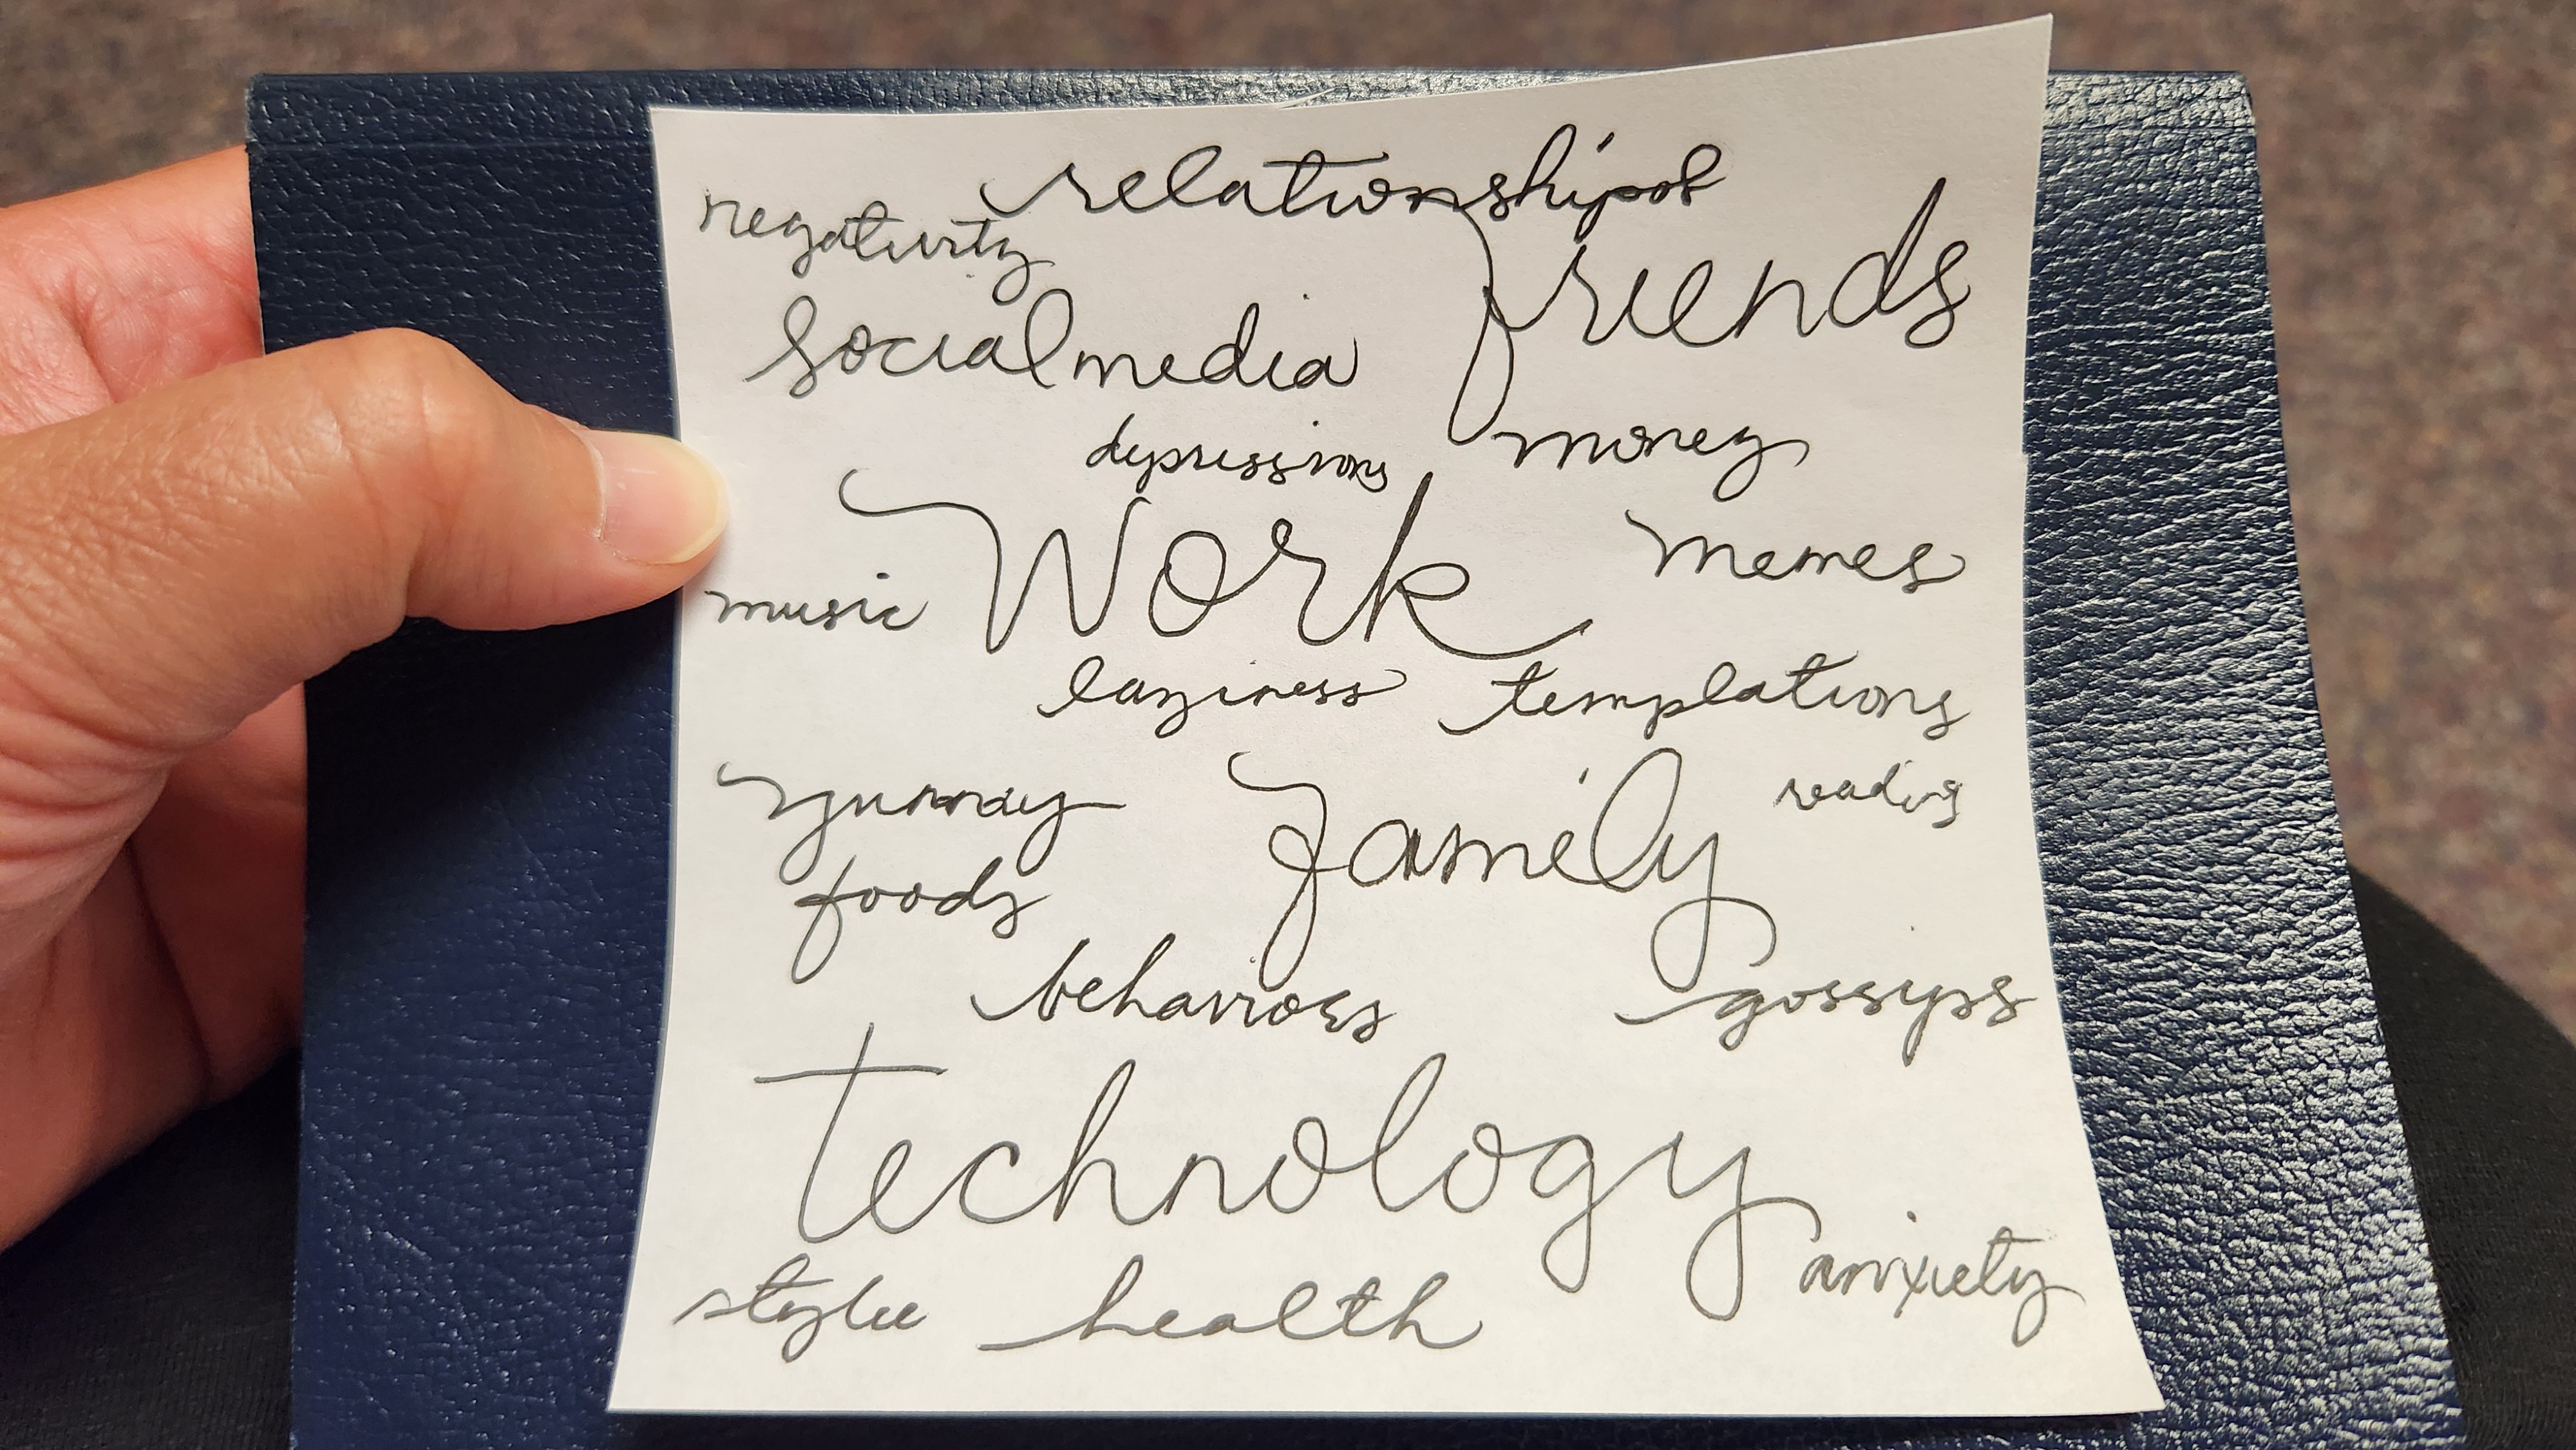 relationships
negativity
friends
social media
depressions
money
Work
memes
music
laziness
temptations
yummy
foods
family
reading
behaviors
gossips
technology
anxiety
style
health